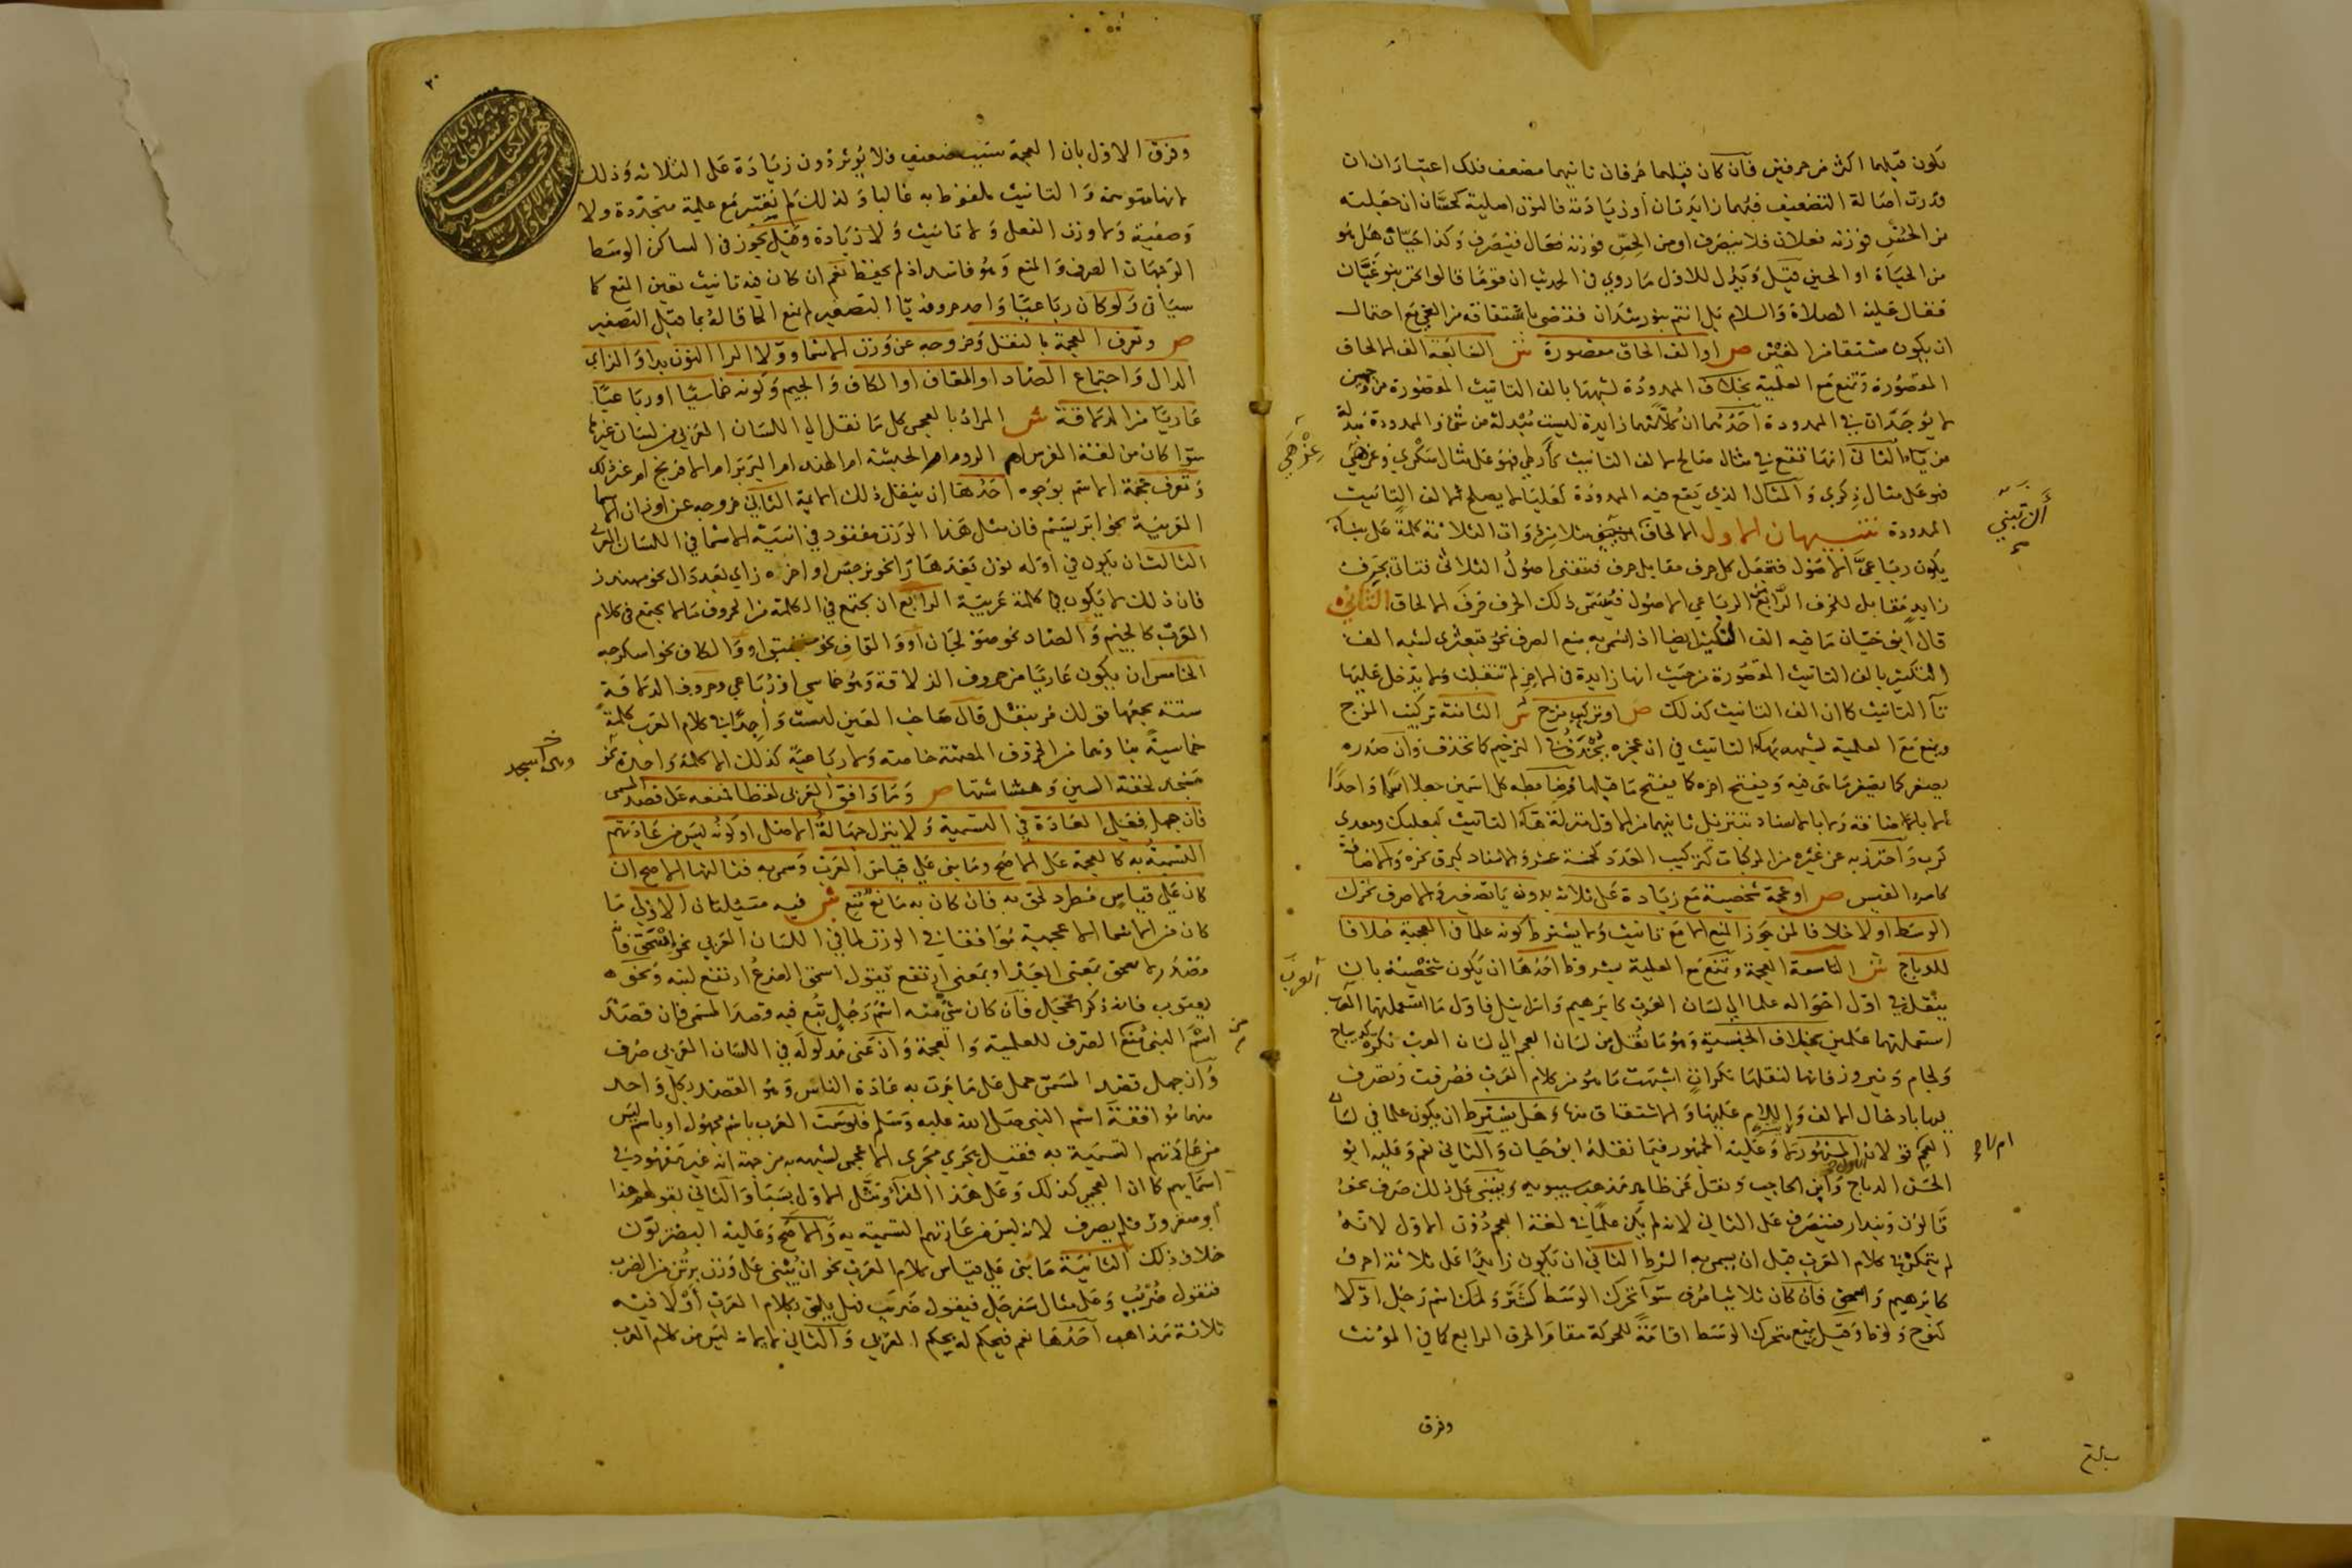 يكون قبلهما اكثر من حرفين فان كان قبلهما حرفان ثانيهما مضعف فلك اعتباران ان
قدرت اصالة التضعيف فهما زايدتان او زيادته فالنون اصلية كحسان ان جعلته
من الحسّ فوزنه فعلان فلا ينصرف او من الحسن فوزنه فعال فينصرف وكذا حيّان هل هو
من الحياة او الحين قيل ويدل للاول ما روي في الحديث ان قوما قالوا نحن بنو غيّان
فقال عليه الصلاة والسلام بل انتم بنو رشدان فقضى باشتقاقه من الغي مع احتمال
ان يكون مشتقا من الغين ص او الف الحاق مقصورة ش السابعة الف الالحاق
المقصورة وتمنع مع العلمية بخلاف الممدودة لشبهها بالف التانيث المقصورة من وجهين
لا يوجدان في الممدودة احدهما ان كلا منهما زايدة ليست مبدلة من شي والممدودة مبدلة
من ياء الثاني انها تقع في مثال صالح لالف التانيث كارطى فهو على مثال سكرى وعزهى
فهو على مثال ذكرى والمثال الذي يقع فيه الممدودة كعلباء لا يصلح لالف التانيث
الممدودة تنبيهان الاول الالحاق ان تبني مثلا من ذوات الثلاثة كلمة على بناء
يكون رباعيّ الاصول فتجعل كل حرف مقابل حرف فتفنى اصول الثلاثي فتاتي بحرف
زايد مقابل للحرف الرابع من الرباعي الاصول فيسمى ذلك الحرف حرف الالحاق الثاني
قال ابو حيان ما فيه الف التكثير ايضا اذا سمي به منع الصرف نحو قبعثرى لشبه الف
التكثير بالف التانيث المقصورة من حيث انها زايدة في الاخر لم تنقلب ولا يدخل عليها
تا التانيث كما ان الف التانيث كذلك ص او تركيب مزج ش الثامنة تركيب المزج
ويمنع مع العلمية لشبهه بهاء التانيث في ان عجزه يحذف في الترخيم كما تحذف وان صدره
يصغر كما يصغر ما هي فيه ويفتح اخره كما يفتح ما قبلها وضابطه كل اسمين جعلا اسما واحدا
لا بالاضافة ولا بالاسناد بتنزيل ثانيهما من الاول منزلة هاء التانيث كبعلبك ومعدي
كرب واحترز به عن غيره من المركبات كتركيب العدد كخمسة عشر والاسناد كبرق نحره والاضافة
كامرء القيس ص او عجمة شخصية مع زيادة على ثلاثة بدون يا تصغير والا صرف تحرك
الوسط اولا خلافا لمن جوز المنع الا مع تانيث ولا يشترط كونه علما في العجمية خلافا
للدباج ش التاسعة العجمة وتمنع مع العلمية بشروط احدها ان يكون شخصية بان
ينقل في اول احواله علما الى لسان العرب كابرهيم واسرايل فاول ما استعملتهما العرب
استعملتهما علمين بخلاف الجنسية وهو ما نقل من لسان العجم الى لسان العرب نكرة كديباج
ولجام ونيروز فانها لنقلها نكرات اشبهت ما هو من كلام العرب فصرفت وتصرف
فيها بادخال الالف واللام عليها والاشتقاق منها وهل يشترط ان يكون علما في لسان
العجم قولان المشهور لا وعليه الجمهور فيما نقله ابو حيان والثاني نعم وعليه ابو
الحسن الدباج وابن الحاجب ونقل عن ظاهر مذهب سيبويه وينبني على ذلك صرف نحو
قالون وبندار فينصرف على الثاني لانه لم يكن علما في لغة العجم دون الاول لانه
لم يتمكن في كلام العرب قبل ان يسمى به الشرط الثاني ان يكون زايدا على ثلاثة احرف
كابرهيم واسحق فان كان ثلاثيا صرف سوا تحرك الوسط كشتر ولمك اسم رجل او لا
كنوح ولوط وقيل يمنع متحرك الوسط اقامة للحركة مقام الحرف الرابع كما في المؤنث
وفرق
عِزْهَى
أن تبني
العرب
وفرق الاول بان العجمة سبب ضعيف فلا يوثر دون زيادة على الثلاثة وذلك
لانها متوهمة والتانيث ملفوظ به غالبا ولذلك لم يعتبر مع علمية متجددة ولا
وصفية ولا وزن الفعل ولا تانيث ولا زيادة وقيل يجوز في الساكن الوسط
الوجهان الصرف والمنع وهو فاسد اذ لم يحفظ نعم ان كان فيه تانيث تعين المنع كما
سياتي ولو كان رباعيا واحد حروفه يا التصغير لم يمنع الحاقا له بما قبل التصغير
ص وتعرف العجمة بالنقل وخروجه عن وزن الاسما وولاء الرا النون بدا والزاي
الدال واجتماع الصاد او القاف او الكاف والجيم وكونه خماسيا او رباعيا
عاريا من الذلاقة ش المراد بالعجمي كل ما نقل الى اللسان العربي من لسان غيرها
سوا كان من لغة الفرس ام الروم ام الحبشة ام الهند ام البربر ام الافرنج ام غير ذلك
وتعرف عجمة الاسم بوجوه احدها ان ينقل ذلك الايمة الثاني خروجه عن اوزان الاسما
العربية نحو ابريسم فان مثل هذا الوزن مفقود في ابنية الاسما في اللسان العربي
الثالث ان يكون في اوله نون بعدها را نحو نرجس او اخره زاي بعد دال نحو مهندز
فان ذلك لا يكون في كلمة عربية الرابع ان يجتمع في الكلمة من الحروف ما لا يجتمع في كلام
العرب كالجيم والصاد نحو صولجان او والقاف نحو منجنيق او والكاف نحو اسكرجه
الخامس ان يكون عاريا من حروف الذلاقة وهو خماسي او رباعي وحروف الذلاقة
ستة يجمعها قولك مر بنفل قال صاحب العين ليست واجدا في كلام العرب كلمة
خماسية بناوها من الحروف المصمتة خاصة ولا رباعية كذلك الا كلمة واحدة نحو
عسجد لخفة السين وهشاشتها ص وما وافق العربي لفظا فمنعه على قصد المسمى
فان جهل فعلى العادة في التسمية ولا ينزل جهالة الاصل او كونه ليس من عادتهم
التسمية به كالعجمة على الاصح وما بني على قياس العرب وسمي به فثالثها الاصح ان
كان على قياس مطرد لحق به فان كان به مانع منع ش فيه مسئلتان الاولى ما
كان من الاسما الاعجمية موافقا في الوزن لما في اللسان العربي نحو اسحق فانه
مصدر لاسحق بمعنى ابعد او بمعنى ارتفع تقول اسحق الضرع ارتفع لبنه ونحو
يعقوب فانه ذكر الحجل فان كان شي منه اسم رجل تُبع فيه قصد المسمى فان قصد
اسم النبي منع الصرف للعلمية والعجمة وان عنى مدلوله في اللسان العربي صرف
وان جهل قصد المسمى حمل على ما جرت به عادة الناس وهو القصد بكل واحد
منهما موافقة اسم النبي صلى الله عليه وسلم فلو سمت العرب باسم مجهول او باسم ليس
من عادتهم التسمية به فقيل يجري مجرى الاعجمي لشبهه به من جهة انه غير معهود في
اسمايهم كما ان العجمي كذلك وعلى هذا الفراء ومثل الاول بسبا والثاني بقولهم هذا
ابو صعرور فلم يصرف لانه ليس من عادتهم التسمية به والاصح وعليه البصريون
خلاف ذلك الثانية ما بني على قياس كلام العرب نحو ان يبنى على وزن برثن من الضرب
فتقول ضُرْبُب وعلى مثال سفرجل فيقول ضربب فهل يلحق بكلام العرب اولا فيه
ثلاثة مذاهب احدها نعم فيحكم له بحكم العربي والثاني لا لانه ليس من كلام العرب